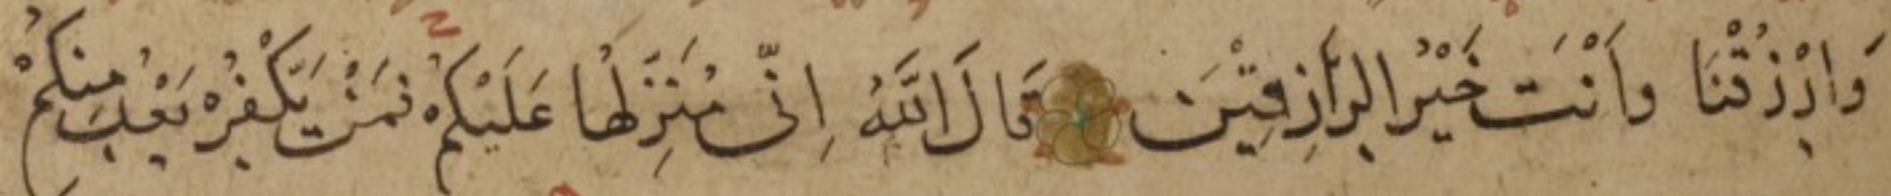 وَارْزُقْنَا وَاَنْتَ خَيْرُ الرَّازِقِيْنَ قَالَ اللّٰهُ اِنِّى مُنَزِّلُهَا عَلَيْكُمْ فَمَنْ يَكْفُرْ بَعْدُ مِنْكُمْ